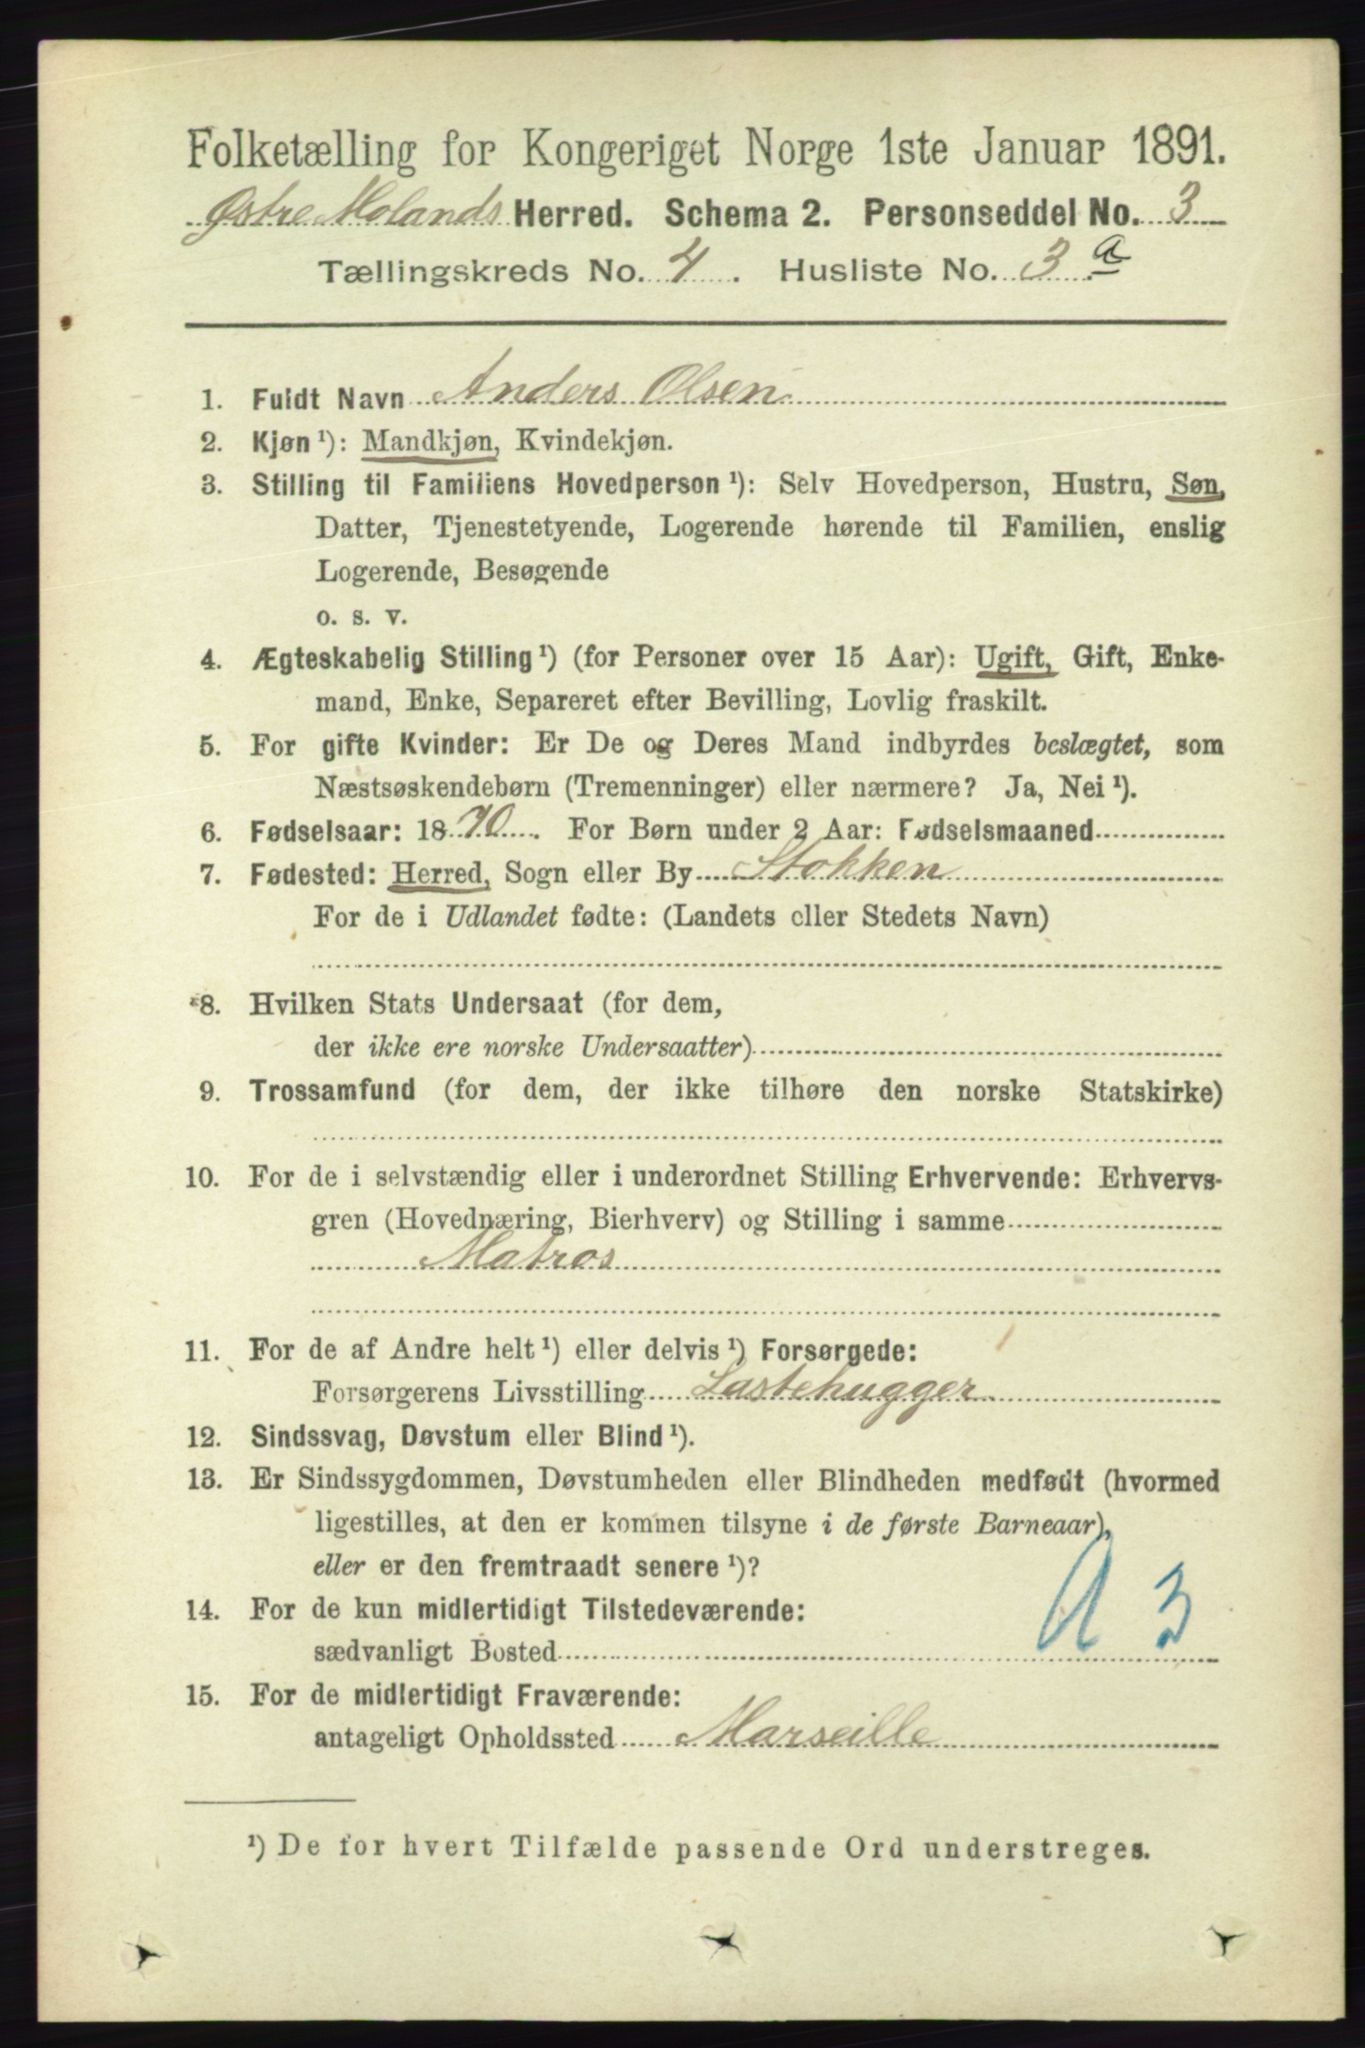 Folketælling for Kongeriget Norge 1ste Januar 1891.
Østre Molands Herred. Schema 2. Personseddel No. 3
Tællingskreds No. 4. Husliste No. 3 a
1. Fuldt Navn Anders Olsen
2. Kjøn ¹): Mandkjøn, Kvindekjøn.
3. Stilling til Familiens Hovedperson ¹): Selv Hovedperson, Hustru, Søn,
Datter, Tjenestetyende, Logerende hørende til Familien, enslig
Logerende, Besøgende
o. s. v.
4. Ægteskabelig Stilling ¹) (for Personer over 15 Aar): Ugift, Gift, Enke-
mand, Enke, Separeret efter Bevilling, Lovlig fraskilt.
5. For gifte Kvinder: Er De og Deres Mand indbyrdes beslægtet, som
Næstsøskendebørn (Tremenninger) eller nærmere? Ja, Nei ¹).
6. Fødselsaar: 1870. For Børn under 2 Aar: Fødselsmaaned
7. Fødested: Herred, Sogn eller By Stokken
For de i Udlandet fødte: (Landets eller Stedets Navn)
8. Hvilken Stats Undersaat (for dem,
der ikke ere norske Undersaatter)
9. Trossamfund (for dem, der ikke tilhøre den norske Statskirke)
10. For de i selvstændig eller i underordnet Stilling Erhvervende: Erhvervs-
gren (Hovednæring, Bierhverv) og Stilling i samme
Matros
11. For de af Andre helt ¹) eller delvis ¹) Forsørgede:
Forsørgerens Livsstilling Lastehugger
12. Sindssvag, Døvstum eller Blind ¹).
13. Er Sindssygdommen, Døvstumheden eller Blindheden medfødt (hvormed
ligestilles, at den er kommen tilsyne i de første Barneaar),
eller er den fremtraadt senere ¹)?
A 3
14. For de kun midlertidigt Tilstedeværende:
sædvanligt Bosted
15. For de midlertidigt Fraværende:
antageligt Opholdssted Marseille
¹) De for hvert Tilfælde passende Ord understreges.